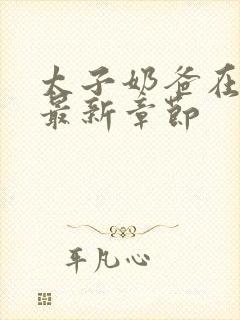 太子奶爸在
最新章节
平凡心